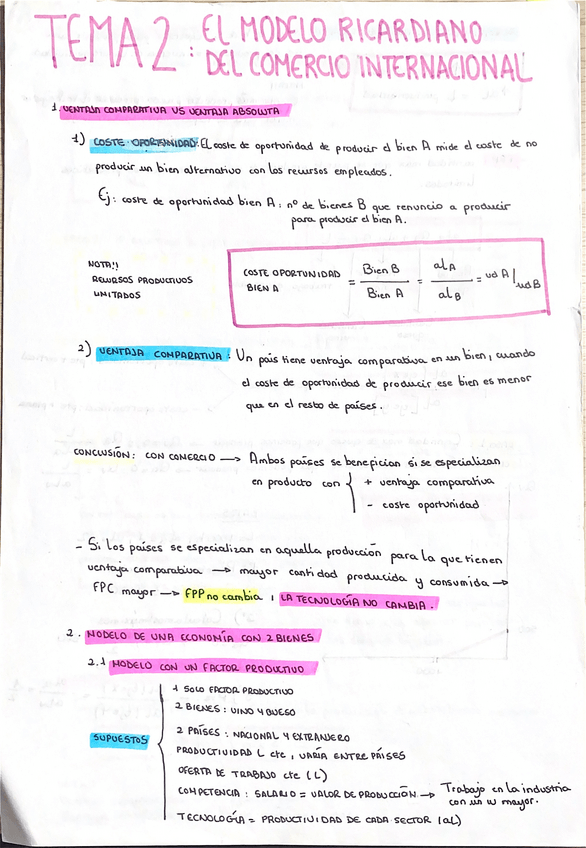 TEMA 2: EL MODELO RICARDIANO
DEL COMERCIO INTERNACIONAL
1. VENTAJA COMPARATIVA VS VENTAJA ABSOLUTA
1) COSTE OPORTUNIDAD: El coste de oportunidad de producir el bien A mide el coste de no
producir un bien alternativo con los recursos empleados.
Ej: coste de oportunidad bien A: nº de bienes B que renuncio a producir
para producir el bien A.
NOTA!!
RECURSOS PRODUCTIVOS
LIMITADOS
COSTE OPORTUNIDAD
BIEN A
= Bien B / Bien A = aLA / aLB = ud A / ud B
2) VENTAJA COMPARATIVA: Un país tiene ventaja comparativa en un bien, cuando
el coste de oportunidad de producir ese bien es menor
que en el resto de países.
CONCLUSIÓN: CON COMERCIO → Ambos países se benefician si se especializan
en producto con { + ventaja comparativa
- coste oportunidad
- Si los países se especializan en aquella producción para la que tienen
ventaja comparativa → mayor cantidad producida y consumida →
FPC mayor → FPP no cambia, LA TECNOLOGÍA NO CAMBIA.
2. MODELO DE UNA ECONOMÍA CON 2 BIENES
2.1 MODELO CON UN FACTOR PRODUCTIVO
SUPUESTOS
1 SOLO FACTOR PRODUCTIVO
2 BIENES: VINO Y QUESO
2 PAÍSES: NACIONAL Y EXTRANJERO
PRODUCTIVIDAD L cte, VARÍA ENTRE PAÍSES
OFERTA DE TRABAJO cte (L)
COMPETENCIA: SALARIO = VALOR DE PRODUCCIÓN → Trabajo en la industria
con un w mayor.
TECNOLOGÍA = PRODUCTIVIDAD DE CADA SECTOR (aL)